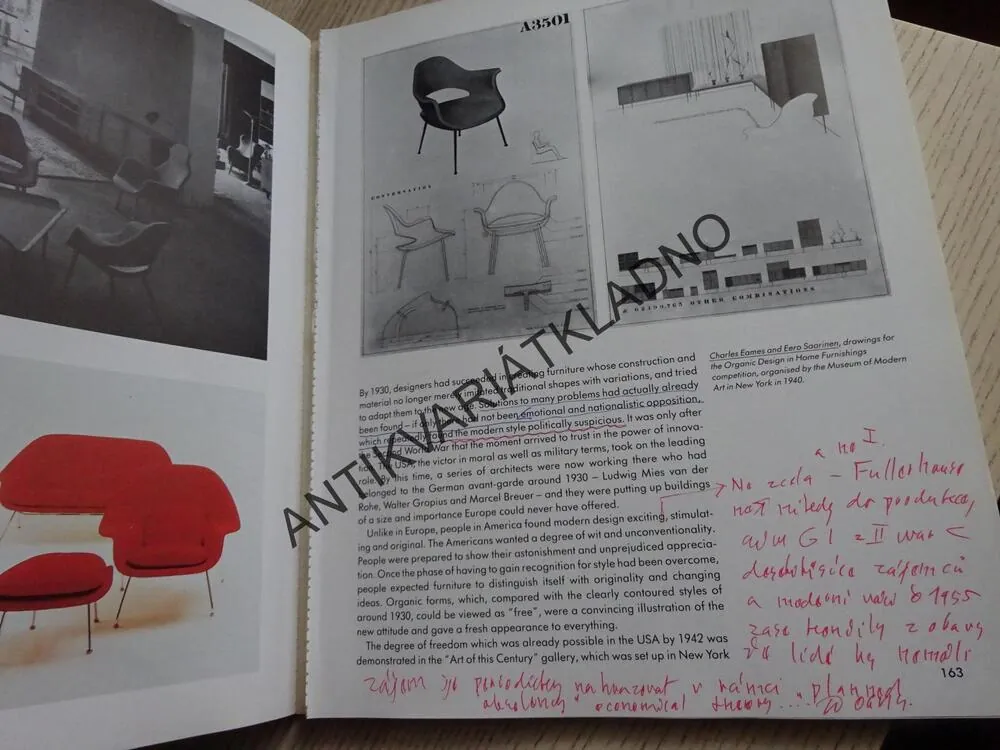 A3501
CONVERSATION
& 02190,765 OTHER COMBINATIONS
ANTIKVARIÁTKLADNO
Charles Eames and Eero Saarinen, drawings for
the Organic Design in Home Furnishings
competition, organised by the Museum of Modern
Art in New York in 1940.
By 1930, designers had succeeded in creating furniture whose construction and
material no longer merely imitated traditional shapes with variations, and tried
to adapt them to the new age. Solutions to many problems had actually already
been found – if only there had not been emotional and nationalistic opposition,
which repeatedly found the modern style politically suspicious. It was only after
the Second World War that the moment arrived to trust in the power of innova-
tion. The USA, the victor in moral as well as military terms, took on the leading
role. By this time, a series of architects were now working there who had
belonged to the German avant-garde around 1930 – Ludwig Mies van der
Rohe, Walter Gropius and Marcel Breuer – and they were putting up buildings
of a size and importance Europe could never have offered.
Unlike in Europe, people in America found modern design exciting, stimulat-
ing and original. The Americans wanted a degree of wit and unconventionality.
People were prepared to show their astonishment and unprejudiced apprecia-
tion. Once the phase of having to gain recognition for style had been overcome,
people expected furniture to distinguish itself with originality and changing
ideas. Organic forms, which, compared with the clearly contoured styles of
around 1930, could be viewed as "free", were a convincing illustration of the
new attitude and gave a fresh appearance to everything.
The degree of freedom which was already possible in the USA by 1942 was
demonstrated in the "Art of this Century" gallery, which was set up in New York
I.
No zcela –
do
GI z II war
zájemců
a moderní 1955
zase z obavy
že lidé by neměli
zájem je periodicky nahrazovat v rámci
economical theory ....
163